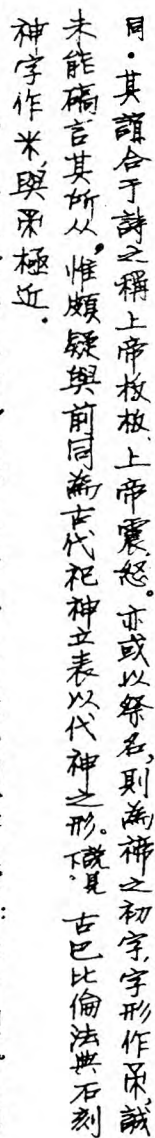 同。其誼合于詩之稱上帝板板、上帝震怒。亦或以祭名，則為禘之初字，字形作帝，誠
未能碻言其所从，惟頗疑與前同為古代祀神立表以代神之形。說見下，古巴比倫法典石刻
神字作米，與帝極近。